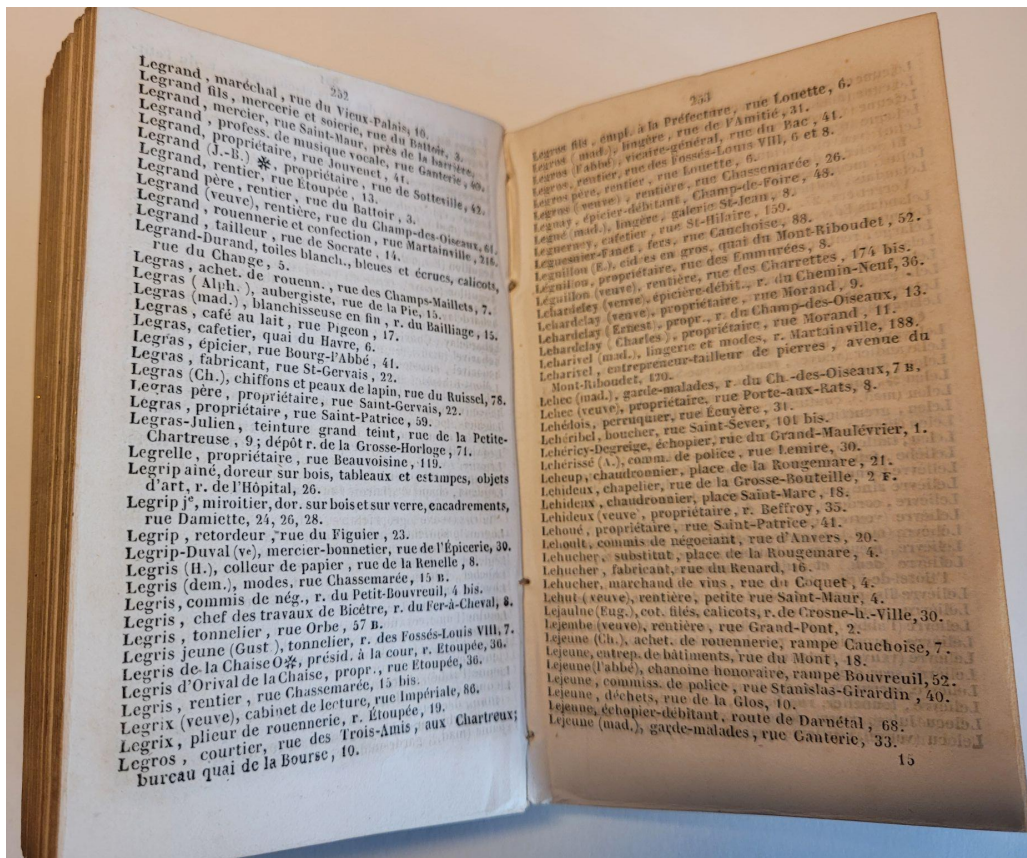 252
Legrand , maréchal , rue du Vieux-Palais, 16.
Legrand fils , mercerie et soierie, rue du Battoir, 3.
Legrand, mercier, rue Saint-Maur, près de la barrière.
Legrand , profess. de musique vocale, rue Ganterie, 40.
Legrand, propriétaire, rue Jouvenet, 41.
Legrand (J.-B.) ✻, propriétaire, rue de Sotteville, 42.
Legrand, rentier, rue Étoupée , 13.
Legrand père, rentier, rue du Battoir , 3.
Legrand (veuve), rentière, rue du Champ-des-Oiseaux, 61.
Legrand , rouennerie et confection , rue Martainville, 216.
Legrand , tailleur , rue de Socrate , 14.
Legrand-Durand, toiles blanch., bleues et écrues, calicots,
rue du Change, 5.
Legras , achet. de rouenn. , rue des Champs-Maillets, 7.
Legras ( Alph. ), aubergiste, rue de la Pie, 15.
Legras (mad.), blanchisseuse en fin , r. du Bailliage, 15.
Legras , café au lait , rue Pigeon , 17.
Legras, cafetier, quai du Havre, 6.
Legras, épicier, rue Bourg-l'Abbé , 41.
Legras, fabricant, rue St-Gervais , 22.
Legras (Ch.), chiffons et peaux de lapin, rue du Ruissel, 78.
Legras père, propriétaire, rue Saint-Gervais, 22.
Legras , propriétaire , rue Saint-Patrice , 59.
Legras-Julien, teinture grand teint, rue de la Petite-
Chartreuse , 9 ; dépôt r. de la Grosse-Horloge , 71.
Legrelle, propriétaire, rue Beauvoisine, 119.
Legrip aîné, doreur sur bois, tableaux et estampes, objets
d'art, r. de l'Hôpital, 26.
Legrip jᵉ, miroitier, dor. sur bois et sur verre, encadrements,
rue Damiette, 24, 26, 28.
Legrip , retordeur , rue du Figuier , 23.
Legrip-Duval (vᵉ), mercier-bonnetier, rue de l'Épicerie, 30.
Legris (H.), colleur de papier , rue de la Renelle , 8.
Legris (dem.), modes, rue Chassemarée, 15 B.
Legris, commis de nég., r. du Petit-Bouvreuil, 4 bis.
Legris , chef des travaux de Bicêtre, r. du Fer-à-Cheval, 8.
Legris , tonnelier , rue Orbe , 57 B.
Legris jeune (Gust ), tonnelier, r. des Fossés-Louis VIII, 7.
Legris de la Chaise O✻, présid. à la cour, r. Étoupée, 36.
Legris d'Orival de la Chaise, propr., rue Étoupée, 36.
Legris , rentier , rue Chassemarée, 15 bis.
Legrix (veuve), cabinet de lecture, rue Impériale, 86.
Legrix , plieur de rouennerie, r. Étoupée, 19.
Legros , courtier, rue des Trois-Amis , aux Chartreux;
bureau quai de la Bourse , 10.
253
Legros fils , empl. à la Préfecture, rue Louette, 6.
Legros (mad.), lingère , rue de l'Amitié , 31.
Legros (l'abbé), vicaire-général, rue du Bac , 41.
Legros, rentier, rue des Fossés-Louis VIII, 6 et 8.
Legros père, rentier , rue Louette, 6.
Legros ( veuve ) , rentière , rue Chassemarée , 26.
Legnay , épicier-débitant, Champ-de-Foire, 48.
Legué (mad.), lingère, galerie St-Jean , 8.
Leguerney, cafetier , rue St-Hilaire , 159.
Leguesnier-Fanet , fers, rue Cauchoise, 88.
Léguillon (E.), cidres en gros, quai du Mont-Riboudet, 52.
Léguillon, propriétaire, rue des Emmurées, 8.
Léguillon (veuve), rentière, rue des Charrettes , 174 bis.
Lehardeley (veuve), épicière-débit., r. du Chemin-Neuf, 36.
Lehardelay (veuve), propriétaire , rue Morand , 9.
Lehardelay (Ernest), propr., r. du Champ-des-Oiseaux, 13.
Lehardelay ( Charles) , propriétaire, rue Morand , 11.
Leharivel (mad.), lingerie et modes, r. Martainville, 188.
Leharivel , entrepreneur-tailleur de pierres , avenue du
Mont-Riboudet, 120.
Lehec (mad.), garde-malades, r. du Ch.-des-Oiseaux, 7 B,
Lehec (veuve), propriétaire, rue Porte-aux-Rats, 8.
Lehédois, perruquier, rue Écuyère , 31.
Lehéribel, boucher, rue Saint-Sever, 101 bis.
Lehéricy-Degreige, échopier, rue du Grand-Maulévrier, 1.
Lehérissé (A.), comm. de police , rue Lemire, 30.
Leheup, chaudronnier, place de la Rougemare, 21.
Lehideux , chapelier, rue de la Grosse-Bouteille, 2 F.
Lehideux , chaudronnier, place Saint-Marc , 18.
Lehideux (veuve , propriétaire, r. Beffroy, 35.
Lehoué , propriétaire , rue Saint-Patrice , 41.
Lehoult , commis de négociant , rue d'Anvers , 20.
Lehucher , substitut , place de la Rougemare, 4.
Lehucher , fabricant, rue du Renard, 16.
Lehucher, marchand de vins , rue du Coquet , 4.
Lehut ( veuve), rentière , petite rue Saint-Maur, 4.
Lejaulne (Eug.), cot. filés, calicots, r. de Crosne-h.-Ville, 30.
Lejembe (veuve), rentière , rue Grand-Pont, 2.
Lejeune (Ch.). achet. de rouennerie, rampe Cauchoise, 7.
Lejeune, entrep. de bâtiments, rue du Mont , 18.
Lejeune (l'abbé), chanoine honoraire, rampe Bouvreuil, 52.
Lejeune, commiss. de police , rue Stanislas-Girardin , 40.
Lejeune , déchets, rue de la Glos, 10.
Lejeune, échopier-débitant, route de Darnétal, 68.
Lejeune (mad.), garde-malades , rue Ganterie, 33.
15